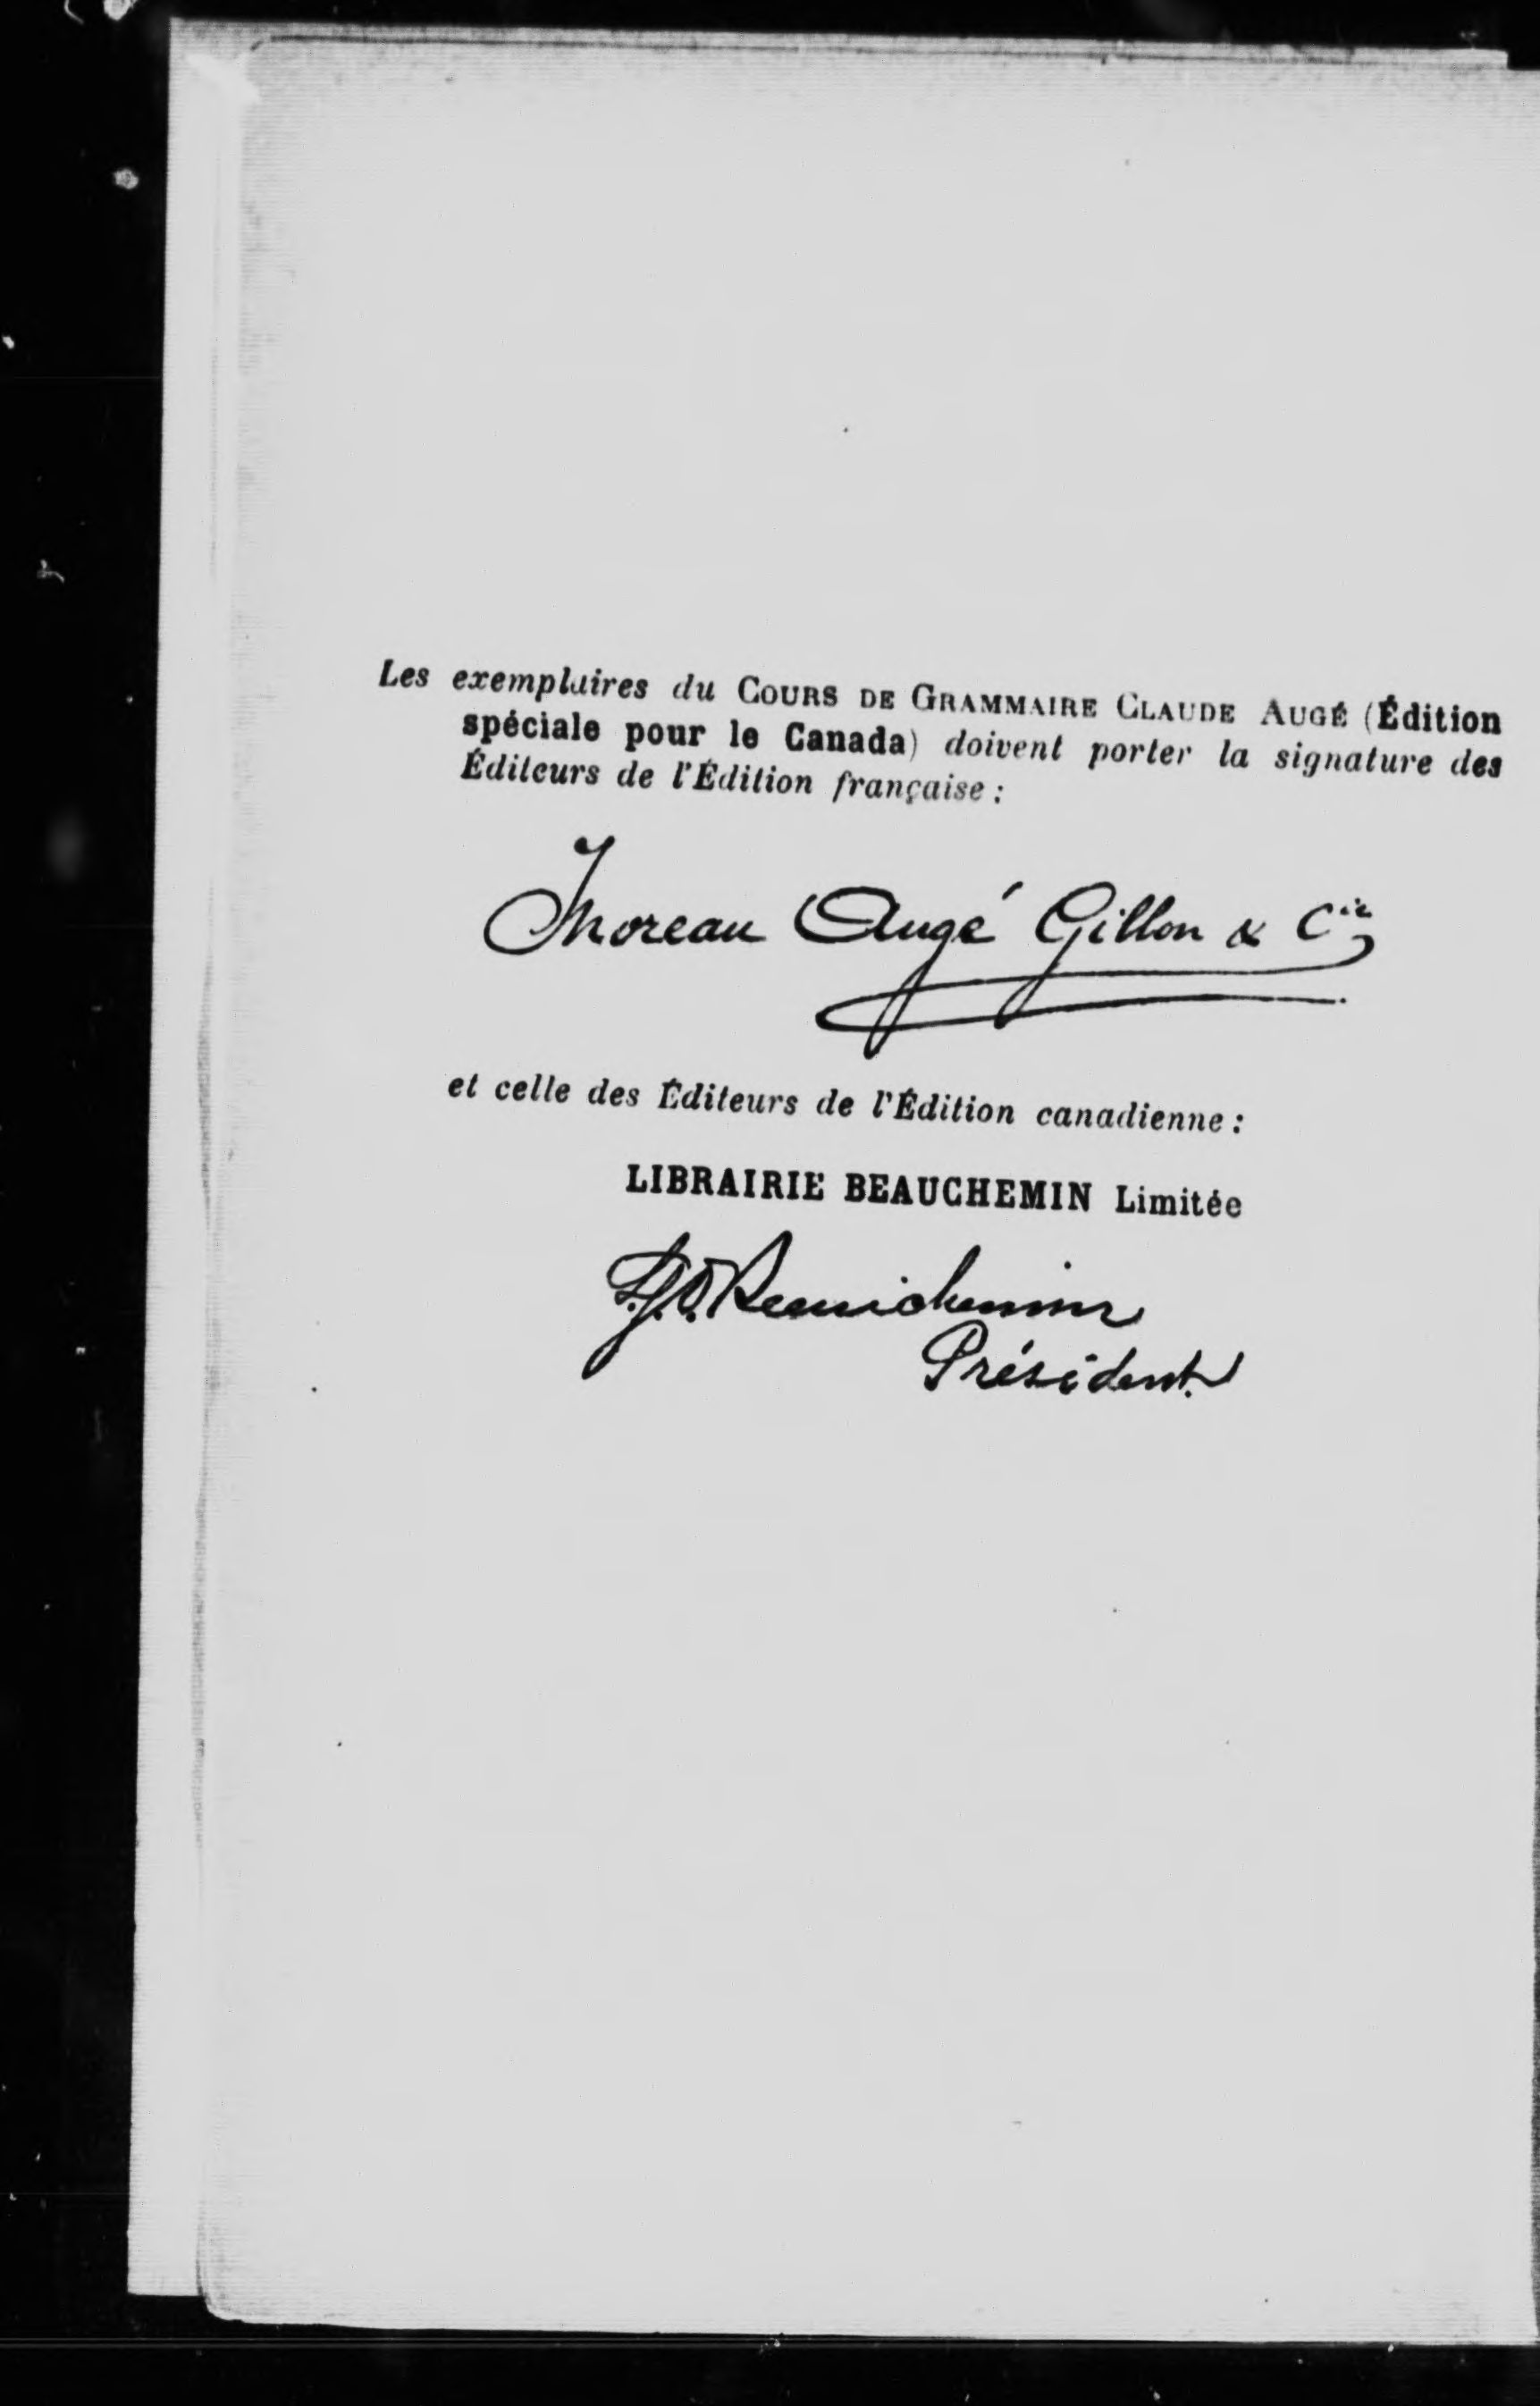 Les exemplaires du COURS DE GRAMMAIRE CLAUDE AUGÉ (Édition
spéciale pour le Canada) doivent porter la signature des
Éditeurs de l'Édition française :
Moreau Augé Gillon & Cie
et celle des Éditeurs de l'Édition canadienne :
LIBRAIRIE BEAUCHEMIN Limitée
Beauchemin
Président